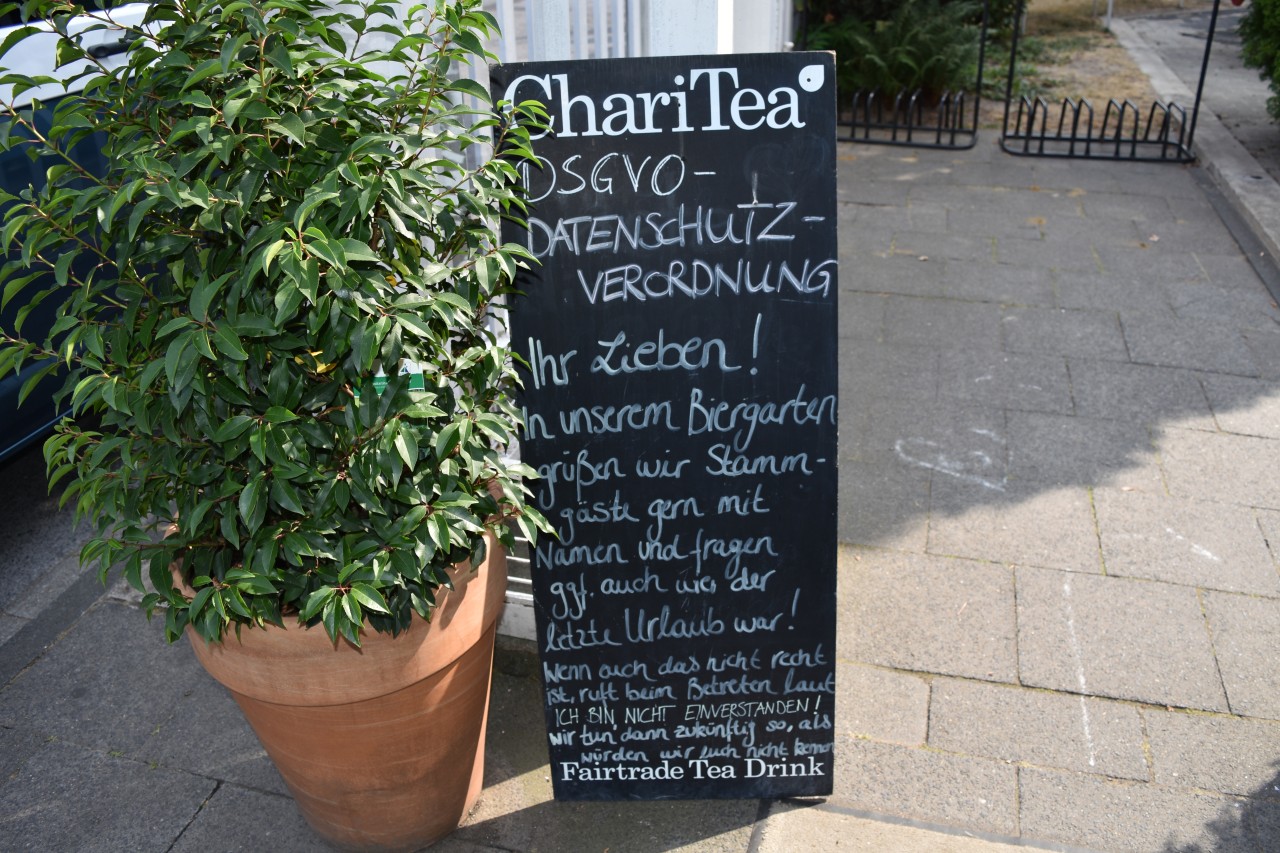 ChariTea
DSGVO-
DATENSCHUTZ-
VERORDNUNG
Ihr Lieben!
In unserem Biergarten
grüßen wir Stamm-
gäste gern mit
Namen und fragen
ggf. auch wie der
letzte Urlaub war!
Wenn euch das nicht recht
ist, ruft beim Betreten laut
ICH BIN NICHT EINVERSTANDEN!
Wir tun dann zukünftig so, als
würden wir euch nicht kennen
Fairtrade Tea Drink